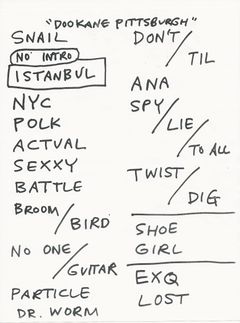 "DOOKANE PITTSBURGH"
SNAIL
NO INTRO
ISTANBUL
NYC
POLK
ACTUAL
SEXXY
BATTLE
BROOM/
BIRD
NO ONE/
GUITAR
PARTICLE
DR. WORM
DON'T/
TIL
ANA
SPY/
LIE/
TO ALL
TWIST/
DIG
SHOE
GIRL
EXQ
LOST